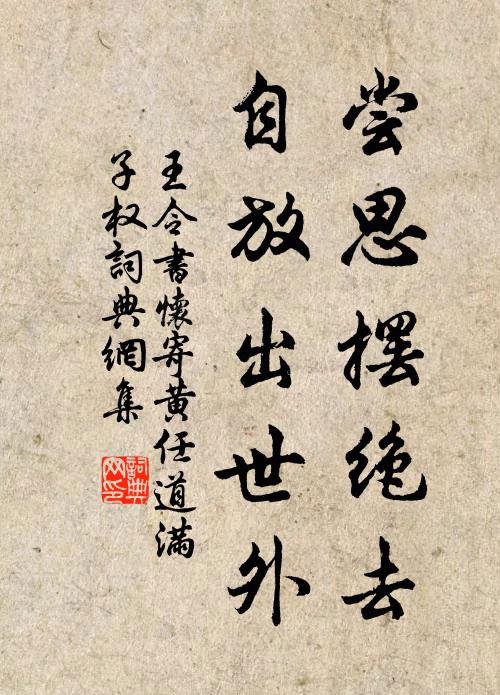 尝思摆绝去
自放出世外
王令書懷寄黄任道满
子权詞典網集
詞典网印